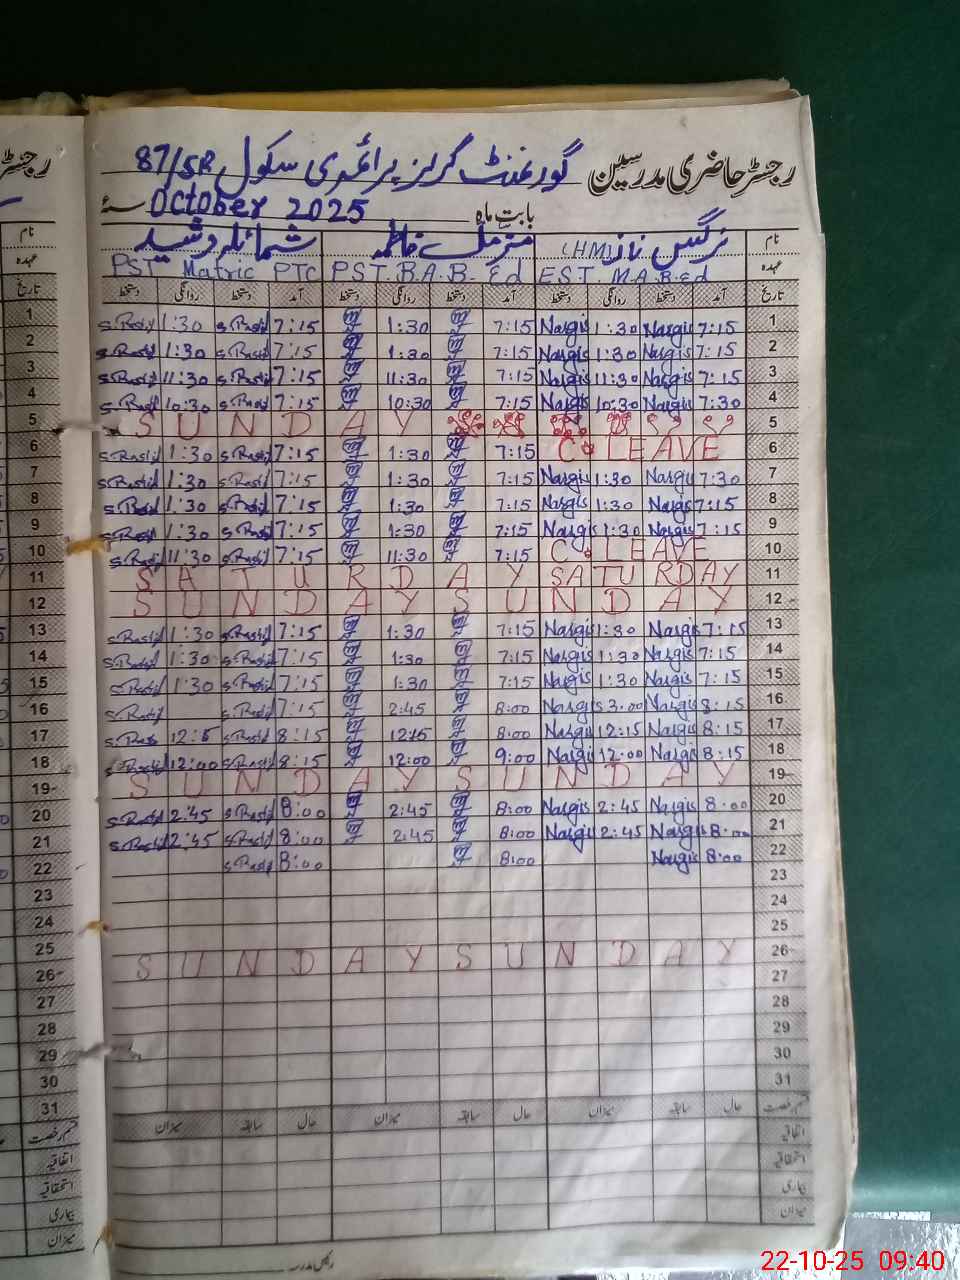 رجسٹر حاضری مدرسین گورنمنٹ گرلز پرائمری سکول 87/5R
بابت ماہ October 2025 سنہ
نام نرگس ناز (HM) منزمل فاطمہ شمائلہ رشید نام
عہدہ EST M.A B.Ed PST B.A B-Ed PST Matric PTC عہدہ
تاریخ آمد دستخط روانگی دستخط آمد دستخط روانگی دستخط آمد دستخط روانگی دستخط تاریخ
1 S.Rashid 1:30 S.Rashid 7:15 1:30 7:15 Nargis 1:30 Nargis 7:15 1
2 S.Rashid 1:30 S.Rashid 7:15 1:30 7:15 Nargis 1:30 Nargis 7:15 2
3 S.Rashid 11:30 S.Rashid 7:15 11:30 7:15 Nargis 11:30 Nargis 7:15 3
4 S.Rashid 10:30 S.Rashid 7:15 10:30 7:15 Nargis 10:30 Nargis 7:30 4
SUNDAY 5
6 S.Rashid 1:30 S.Rashid 7:15 1:30 7:15 C. LEAVE 6
7 S.Rashid 1:30 S.Rashid 7:15 1:30 7:15 Nargis 1:30 Nargis 7:30 7
8 S.Rashid 1:30 S.Rashid 7:15 1:30 7:15 Nargis 1:30 Nargis 7:15 8
9 S.Rashid 1:30 S.Rashid 7:15 1:30 7:15 Nargis 1:30 Nargis 7:15 9
10 S.Rashid 11:30 S.Rashid 7:15 11:30 7:15 C. LEAVE 10
11 SATURDAY SATURDAY 11
12 SUNDAY SUNDAY 12
13 S.Rashid 1:30 S.Rashid 7:15 1:30 7:15 Nargis 1:30 Nargis 7:15 13
14 S.Rashid 1:30 S.Rashid 7:15 1:30 7:15 Nargis 1:30 Nargis 7:15 14
15 S.Rashid 1:30 S.Rashid 7:15 1:30 7:15 Nargis 1:30 Nargis 7:15 15
16 S.Rashid S.Rashid 7:15 2:45 8:00 Nargis 3:00 Nargis 8:15 16
17 S.Rashid S.Rashid 8:15 12:15 8:00 Nargis 12:15 Nargis 8:15 17
18 S.Rashid 12:00 S.Rashid 8:15 12:00 9:00 Nargis 12:00 Nargis 8:15 18
19 SUNDAY SUNDAY 19
20 S.Rashid 2:45 S.Rashid 8:00 2:45 8:00 Nargis 2:45 Nargis 8:00 20
21 S.Rashid 2:45 S.Rashid 8:00 2:45 8:00 Nargis 2:45 Nargis 8:00 21
22 S.Rashid 8:00 8:00 Nargis 8:00 22
23 23
24 24
25 25
26 SUNDAY SUNDAY 26
27 27
28 28
29 29
30 30
31 31
قسم رخصت حال سابقہ میزان حال سابقہ میزان حال سابقہ میزان قسم رخصت
اتفاقیہ اتفاقیہ
استحقاقیہ استحقاقیہ
بیماری بیماری
میزان میزان
رئیس مدرسہ
22-10-25 09:40